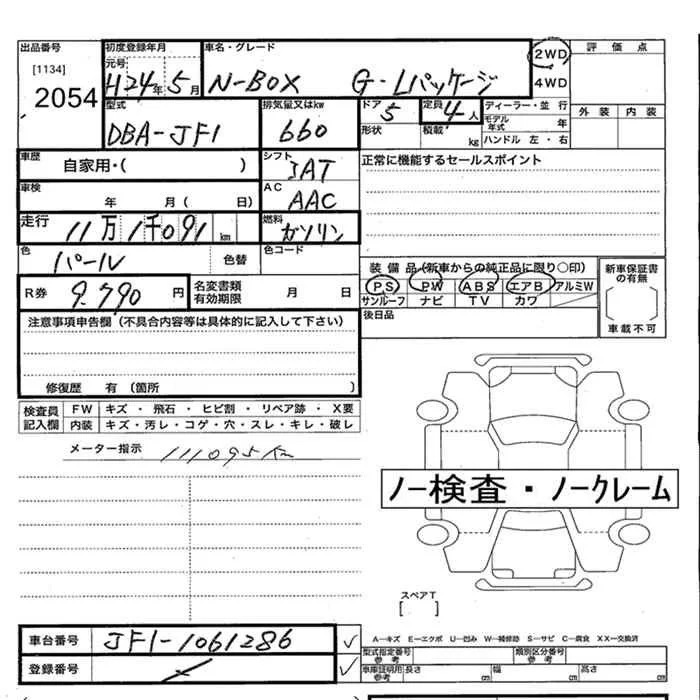 出品番号 初度登録年月 車名・グレード 2WD 評価点
[1134] 元号 4WD
2054 H24年5月 N-BOX G-Lパッケージ
型式 排気量又はkw ドア 5 定員 4人 ディーラー・並行 外装 内装
DBA-JF1 660 形状 積載 kg モデル年式 年
ハンドル 左・右
車歴 自家用・( ) シフト IAT 正常に機能するセールスポイント
車検 年 月( 日) AC AAC
走行 11万1千091km 燃料 ガソリン
色 パール 色替 色コード 装備品(新車からの純正品に限り○印) 新車保証書の有無
R券 9.790円 名変書類有効期限 月 日 PS PW ABS エアB アルミW
サンルーフ ナビ TV カワ
注意事項申告欄(不具合内容等は具体的に記入して下さい) 後日品 車載不可
修復歴 有(箇所 )
検査員記入欄 FW キズ・飛石・ヒビ割・リペア跡・X要
内装 キズ・汚レ・コゲ・穴・スレ・キレ・破レ
メーター指示 111095Km
ノー検査・ノークレーム
スペアT
[ ]
車台番号 JF1-1061286 ✓ A…キズ E…エクボ U…凹み W…補修跡 S…サビ C…腐食 XX…交換済
型式指定番号 参考 類別区分番号 参考
登録番号 ✓ 車庫証明用 参考 長さ cm 幅 cm 高さ cm